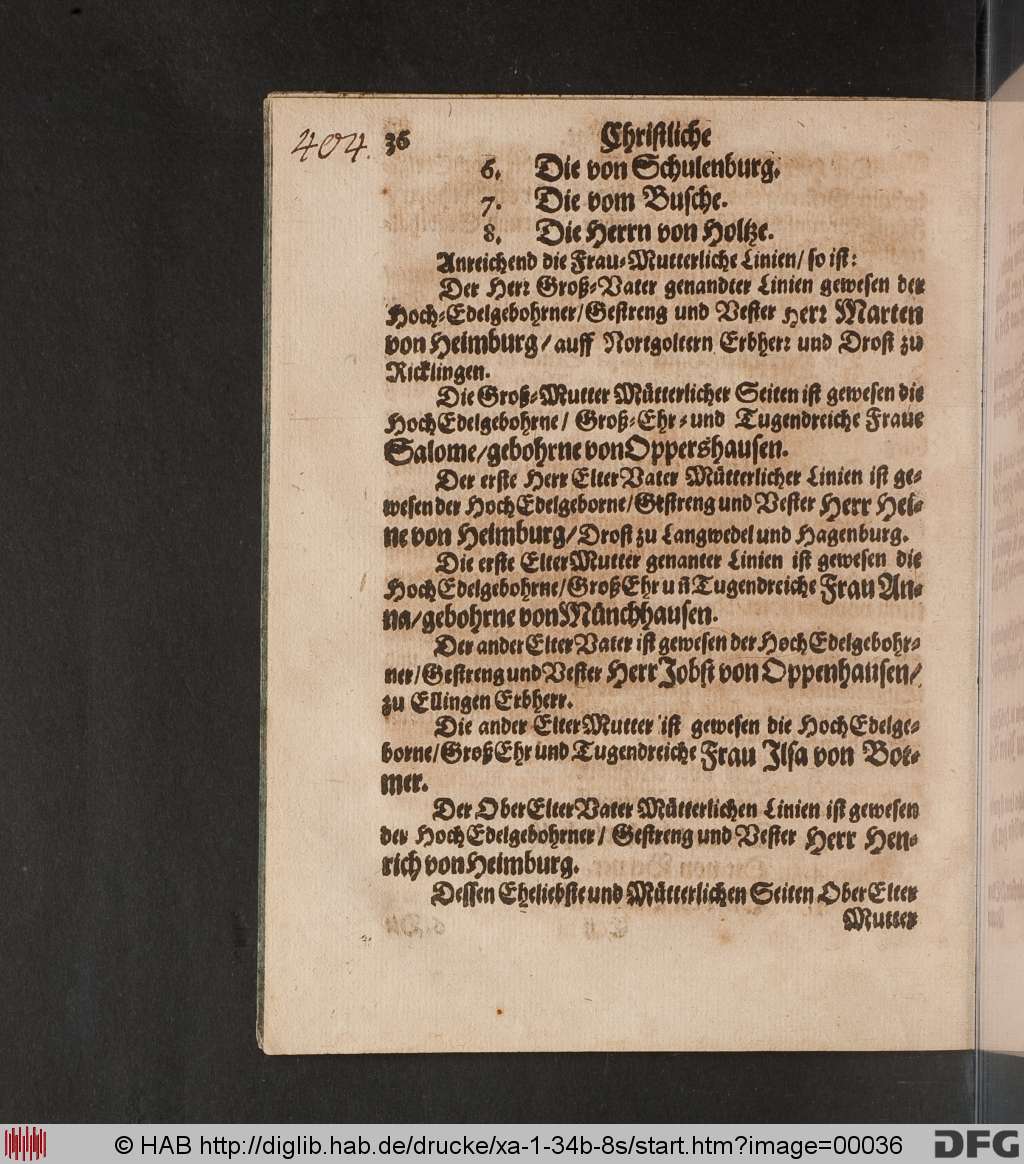 404. 36 Christliche
6. Die von Schulenburg.
7. Die vom Busche.
8. Die Herrn von Holtze.
Anreichend die Frau-Mutterliche Linien/ so ist:
Der Herr Groß-Vater genandter Linien gewesen der
Hoch-Edelgebohrner/Gestreng und Vester Herr Marten
von Heimburg/ auff Nortgoltern Erbherr und Drost zu
Ricklingen.
Die Groß-Mutter Mütterlicher Seiten ist gewesen die
HochEdelgebohrne/ Groß-Ehr-und Tugendreiche Fraue
Salome/gebohrne von Oppershausen.
Der erste Herr ElterVater Mütterlicher Linien ist ge-
wesen der HochEdelgeborne/Gestreng und Vester Herr Hei-
ne von Heimburg/Drost zu Langwedel und Hagenburg.
Die erste ElterMutter genanter Linien ist gewesen die
HochEdelgebohrne/GroßEhr uñ Tugendreiche Frau An-
na/gebohrne von Münchhausen.
Der ander ElterVater ist gewesen der HochEdelgebohr-
ner/Gestreng und Vester Herr Jobst von Oppenhausen/
zu Ellingen Erbherr.
Die ander ElterMutter ist gewesen die HochEdelge-
borne/GroßEhr und Tugendreiche Frau Ilsa von Bot-
mer.
Der OberElterVater Mütterlichen Linien ist gewesen
der HochEdelgebohrner/ Gestreng und Vester Herr Hen-
rich von Heimburg.
Dessen Eheliebste und Mütterlichen Seiten OberElter
Mutter
© HAB http://diglib.hab.de/drucke/xa-1-34b-8s/start.htm?image=00036 DFG